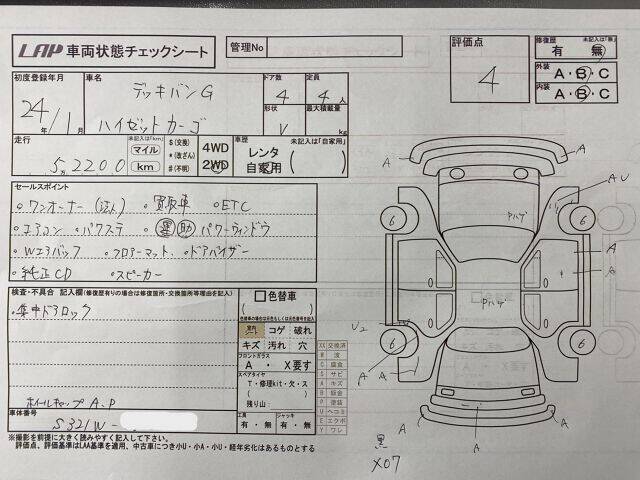 LAP 車両状態チェックシート
管理No
評価点
4
修復歴 未記入は「無」
有 無
外装 A・B・C
内装 A・B・C
初度登録年月
24年/1月
車名
デッキバンG
ハイゼットカーゴ
ドア数
4
定員
4人
形状
V
最大積載量
kg
走行
5万2200
未記入は「km」
マイル
km
$(交換)
*(改ざん)
#(不明)
4WD
2WD
車歴 未記入は「自家用」
レンタ
自家用
セールスポイント
。ワンオーナー(法人) 。買取車 。ETC
。エアコン ・パワステ 。運 助 パワーウィンドウ
。Wエアバック 。フロアーマット、。ドアバイザー
・純正CD 。スピーカー
検査・不具合 記入欄(修復歴有りの場合は修復箇所・交換箇所等理由を記入)
・集中ドアロック
ホイールキャップ A.P
色替車
コゲ 破れ
キズ 汚れ 穴
フロントガラス
A ・ X要す
スペアタイヤ
T・修理kit・欠・ス
残り山:
工具
有・無
ジャッキ
有・無
XX 交換済
W 波
C 腐食
S サビ
A キズ
B 鈑金
P 塗装
U ヘコミ
E エクボ
Y ワレ
車体番号
S321W-
※撮影を前提に大きく読みやすく記入して下さい。
評価点、評価基準はLAA基準を適用、中古車につき小U・小A・小U・経年劣化はあるものとする
A
A
AU
Pハゲ
6
6
A
A
Pハゲ
U2
6
6
A
A
A
A
A
黒
X07